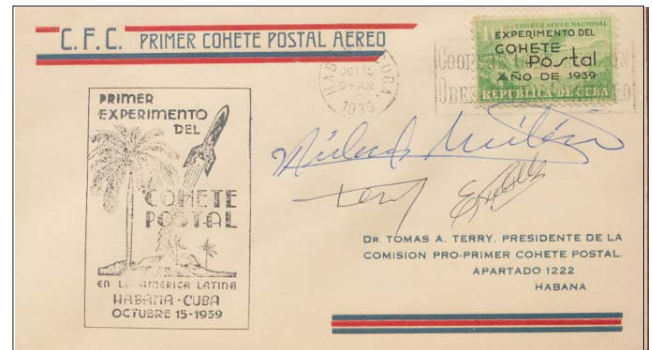 C.F.C. PRIMER COHETE POSTAL AEREO
CORREO AEREO NACIONAL
EXPERIMENTO DEL
COHETE
Postal
AÑO DE 1939
REPUBLICA DE CUBA
HABANA CUBA
OCT 15
1939
PRIMER
EXPERIMENTO
DEL
COHETE
POSTAL
EN LA AMERICA LATINA
HABANA - CUBA
OCTUBRE 15-1939
Terry
DR. TOMAS A. TERRY, PRESIDENTE DE LA
COMISION PRO-PRIMER COHETE POSTAL.
APARTADO 1222
HABANA